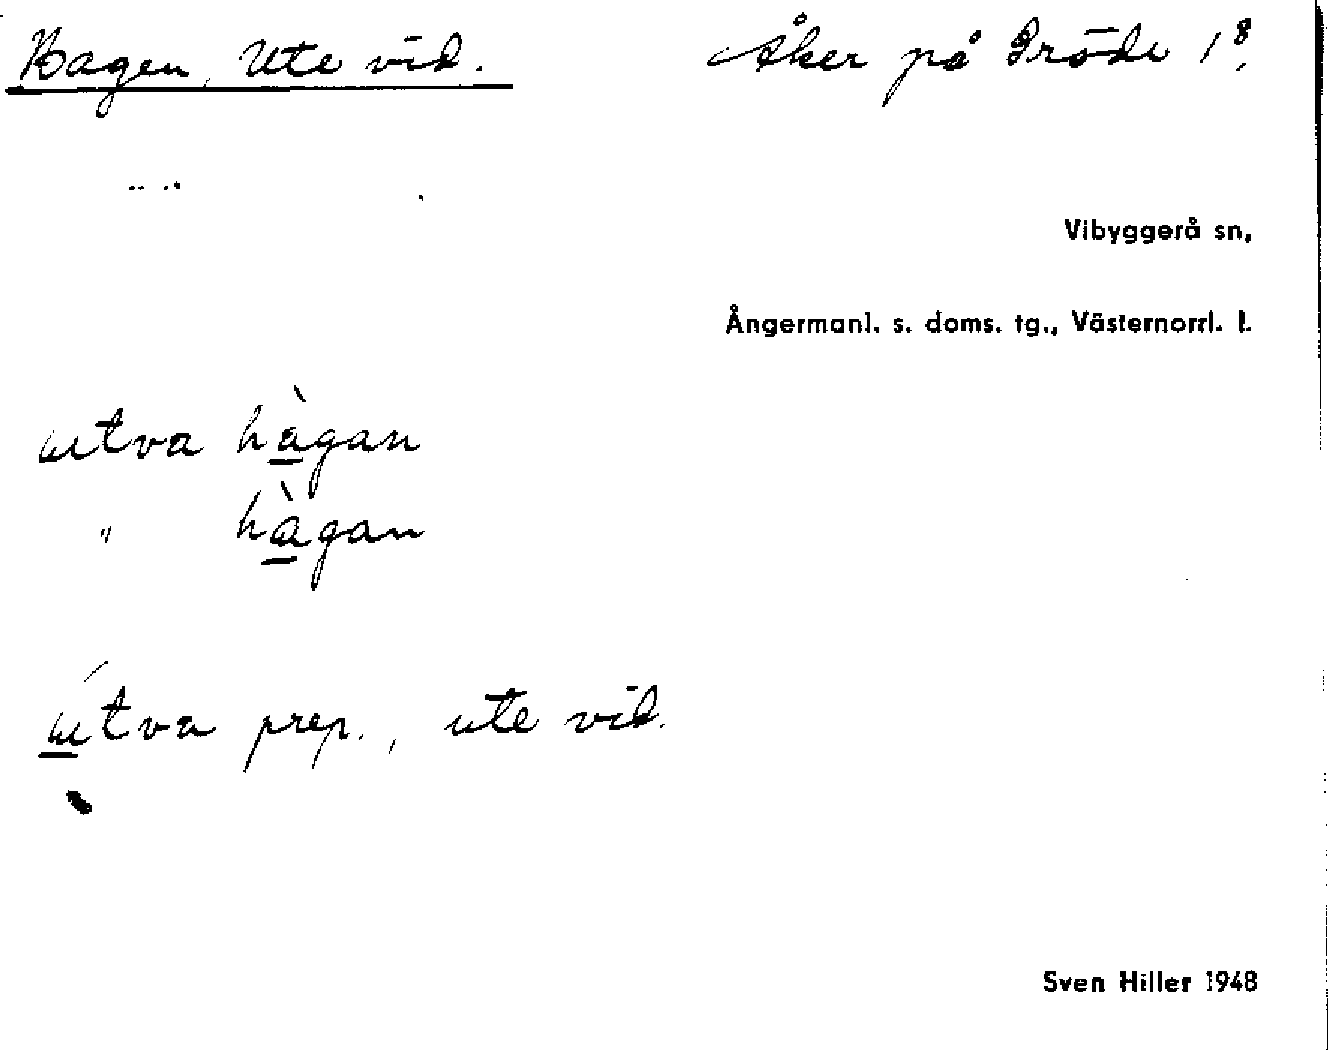 Hagen, Ute vid. Åker på Gröde 1⁸,
Vibyggerå sn,
Ångermanl. s. doms. tg., Västernorrl. l.
utva hàgan
" hàgan
útva prep., ute vid.
Sven Hiller 1948